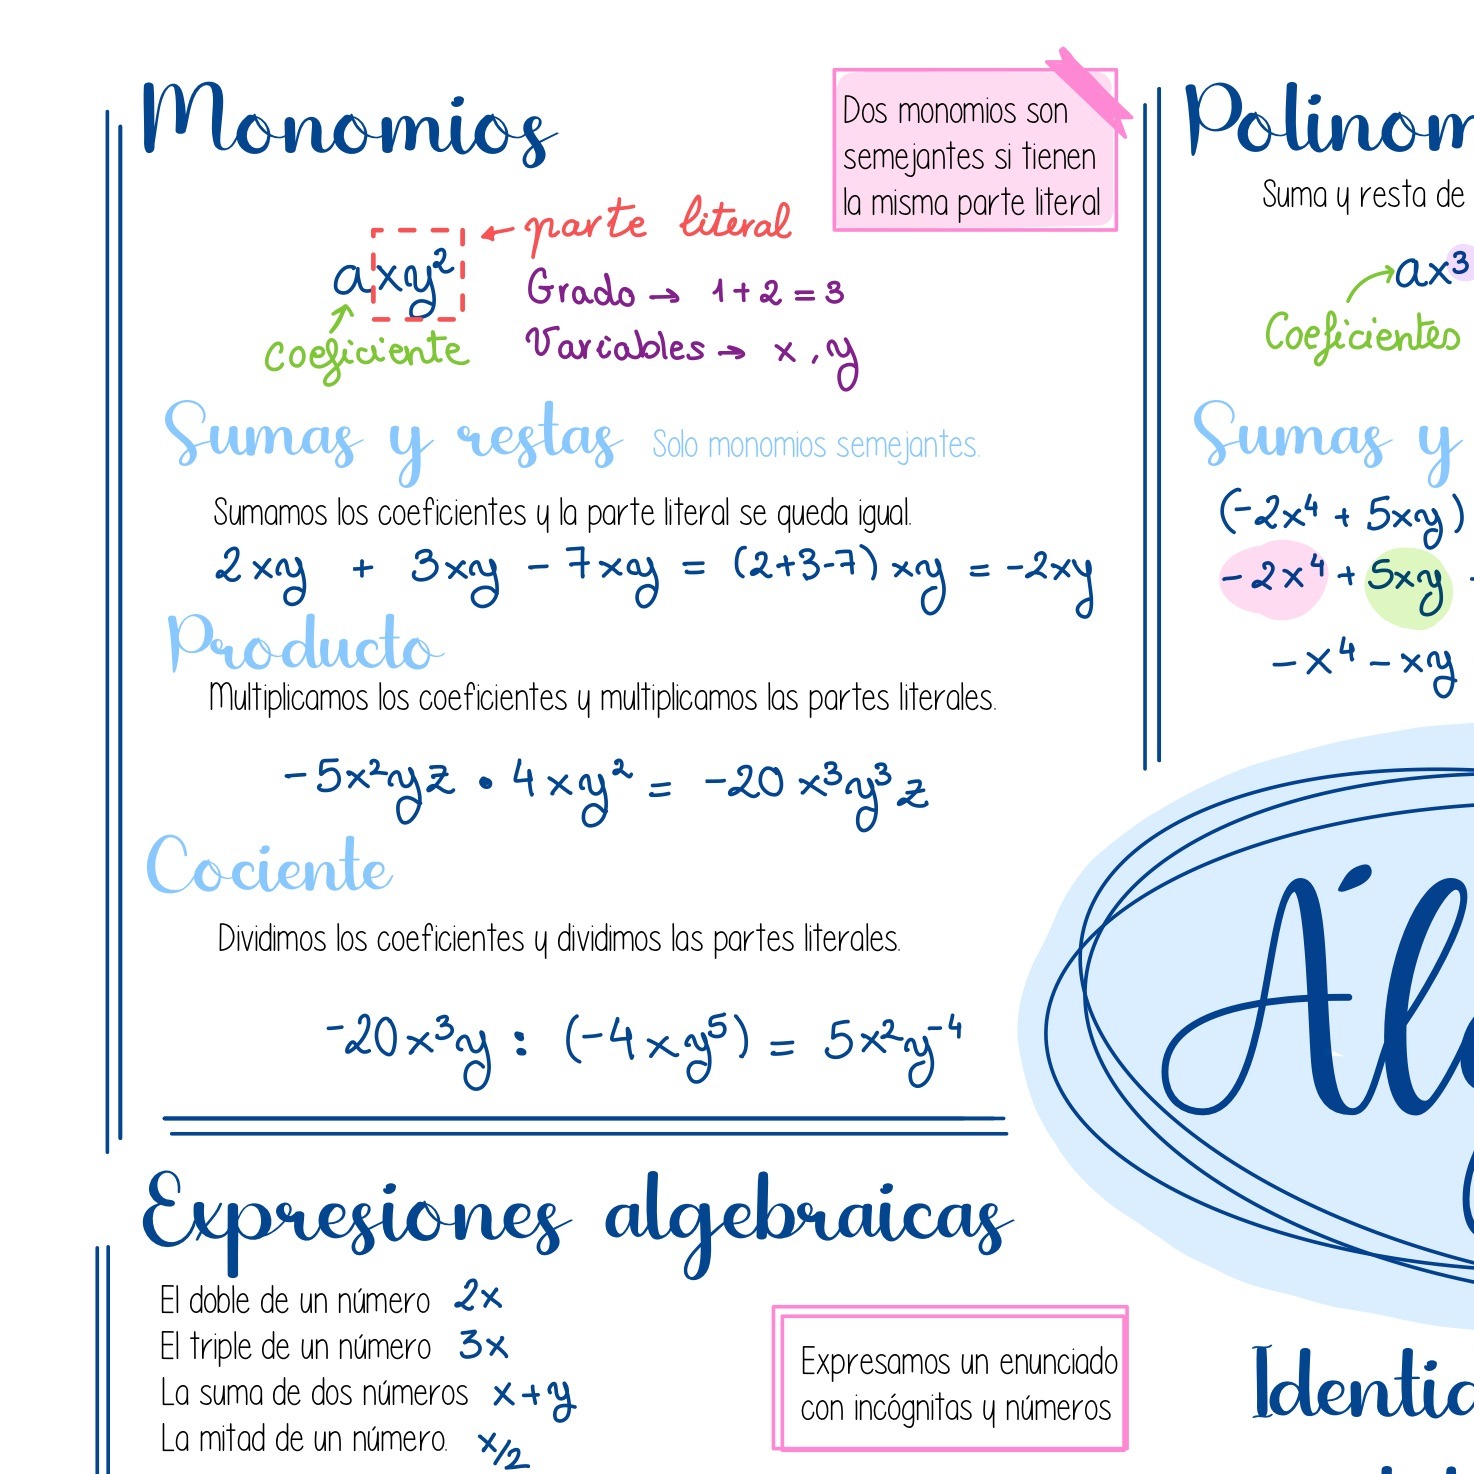 Monomios
Dos monomios son
semejantes si tienen
la misma parte literal
axy²
← parte literal
coeficiente
Grado → 1+2 = 3
Variables → x, y
Sumas y restas Solo monomios semejantes.
Sumamos los coeficientes y la parte literal se queda igual.
2xy + 3xy - 7xy = (2+3-7) xy = -2xy
Producto
Multiplicamos los coeficientes y multiplicamos las partes literales.
-5x²yz • 4xy² = -20 x³y³z
Cociente
Dividimos los coeficientes y dividimos las partes literales.
-20x³y : (-4xy⁵) = 5x²y⁻⁴
Expresiones algebraicas
El doble de un número 2x
El triple de un número 3x
La suma de dos números x+y
La mitad de un número. x/2
Expresamos un enunciado
con incógnitas y números
Polinom
Suma y resta de
ax³
Coeficientes
Sumas y
(-2x⁴ + 5xy)
-2x⁴ + 5xy -
-x⁴ - xy
Ál
Identid